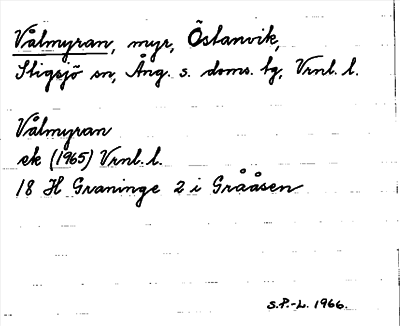 Vålmyran, myr, Östanvik,
Stigsjö sn, Ång. s. doms. tg, Vrnl. l.
Vålmyran
ek (1965) Vrnl. l.
18 H Graninge 2 i Grååsen
S.P.-L. 1966.